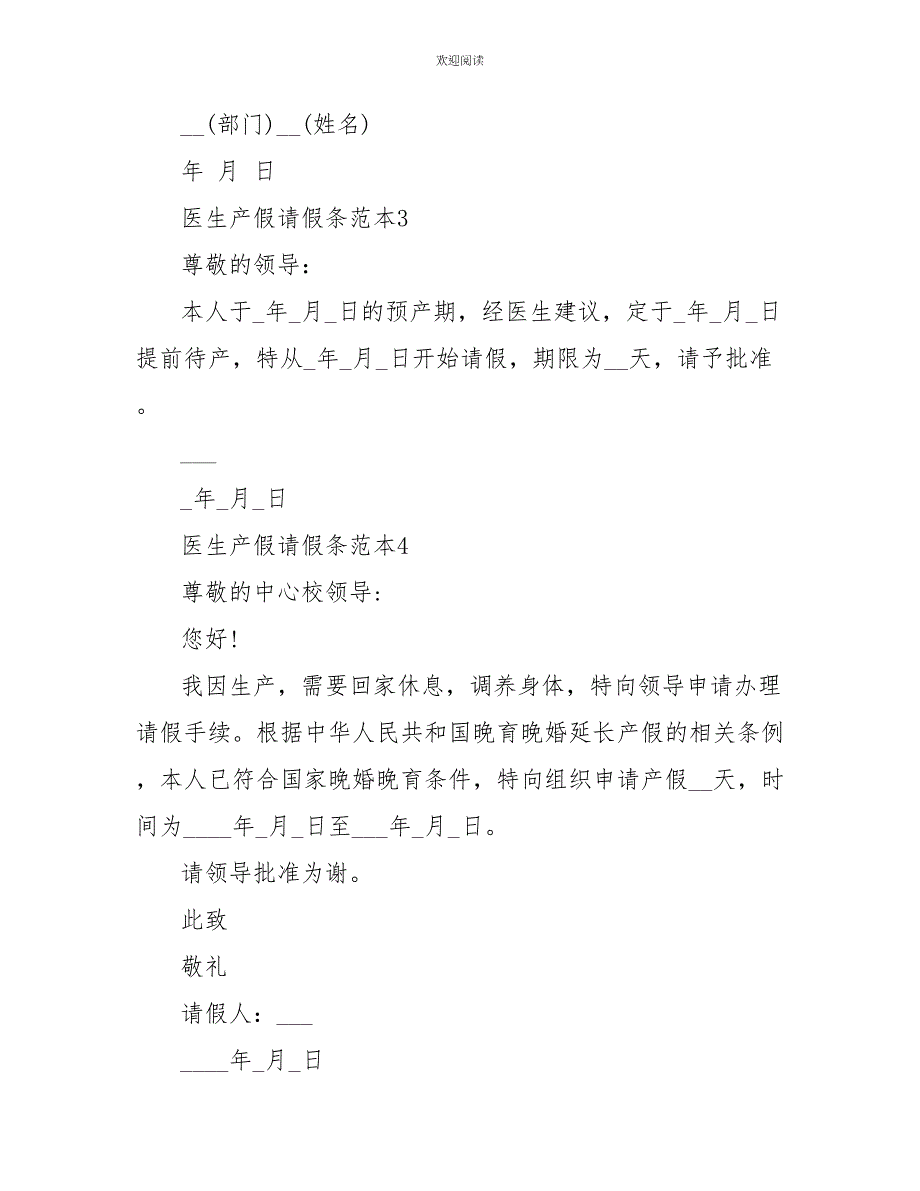 欢迎阅读
__(部门)__(姓名)
年 月 日
医生产假请假条范本3
尊敬的领导：
本人于_年_月_日的预产期，经医生建议，定于_年_月_日
提前待产，特从_年_月_日开始请假，期限为__天，请予批准
。
___
_年_月_日
医生产假请假条范本4
尊敬的中心校领导:
您好!
我因生产，需要回家休息，调养身体，特向领导申请办理
请假手续。根据中华人民共和国晚育晚婚延长产假的相关条例
，本人已符合国家晚婚晚育条件，特向组织申请产假__天，时
间为____年_月_日至___年_月_日。
请领导批准为谢。
此致
敬礼
请假人：___
____年_月_日